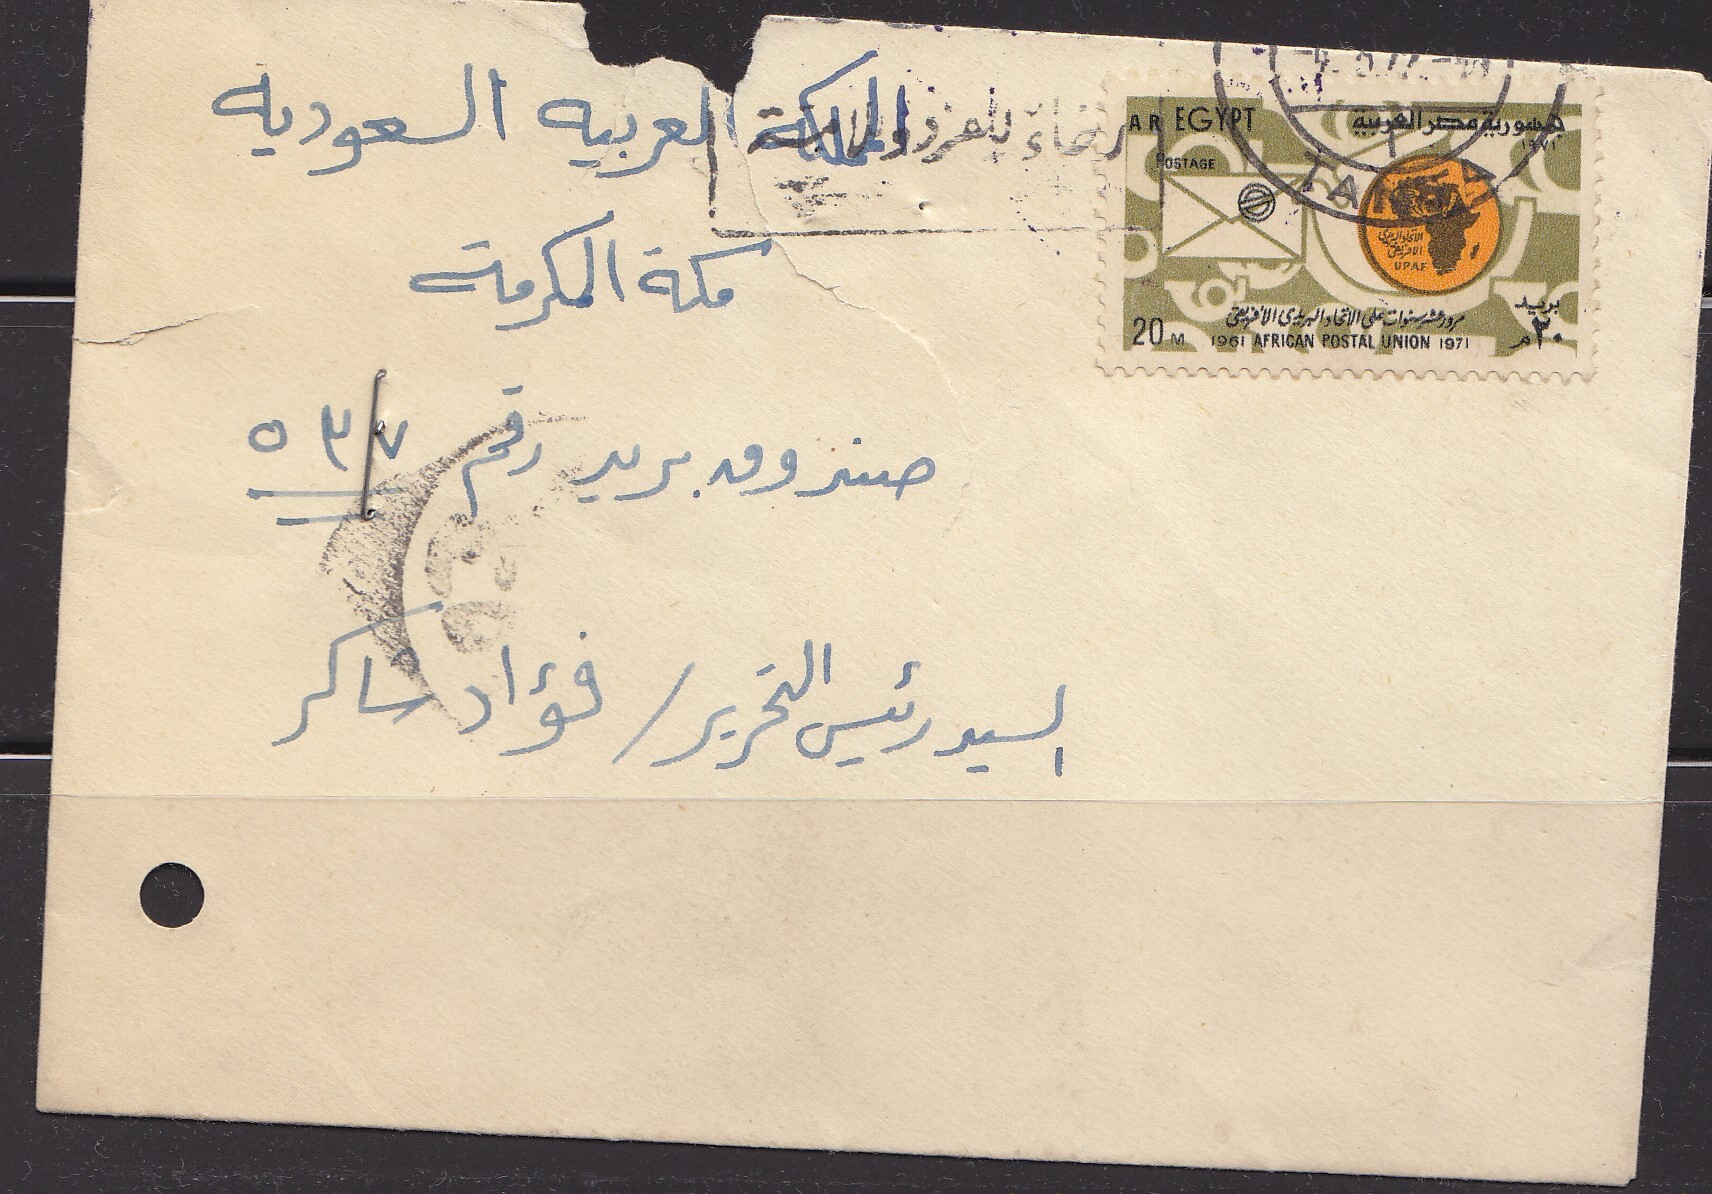 المملكة العربيه السعوديه
مكة المكرمة
صندوق بريد رقم ٥٣٧
السيد رئيس التحرير / فؤاد شاكر
AR EGYPT
جمهورية مصر العربية
١٩٧١
POSTAGE
الاتحاد البريدى
الافريقى
UPAF
بريد
٢٠ م
مرور عشر سنوات على الاتحاد البريدى الافريقى
20 M
1961 AFRICAN POSTAL UNION 1971
TANTA